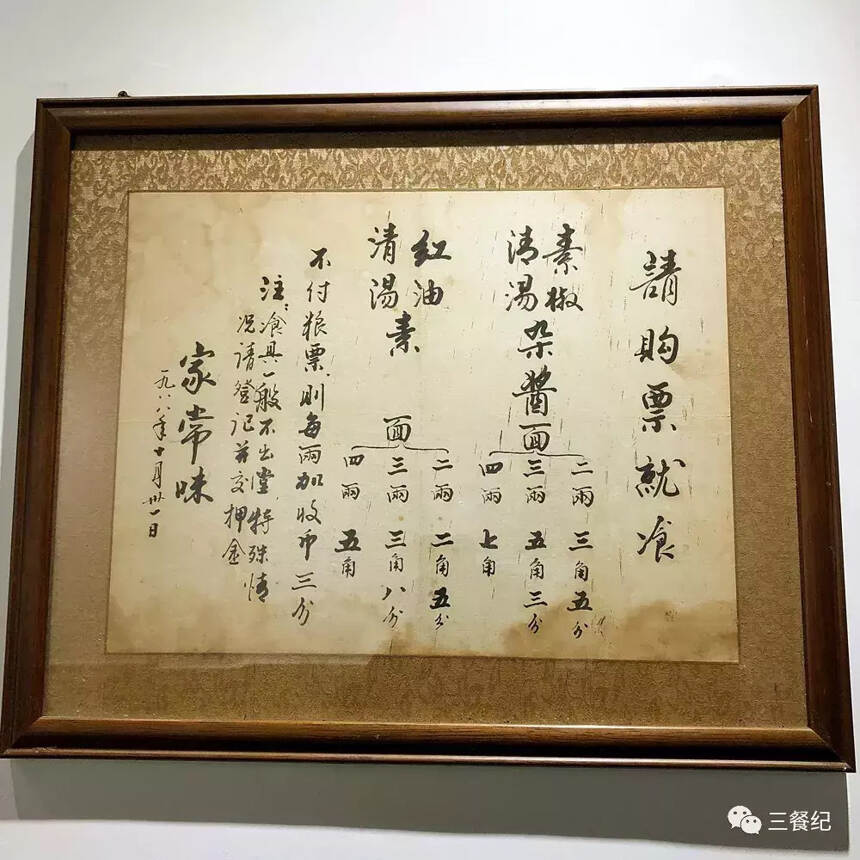 請购票就飡
素椒
清湯
杂醬面
二兩 三角五分
三兩 五角三分
四兩 七角
红油
清湯
素 面
二兩 二角五分
三兩 三角八分
四兩 五角
不付粮票,则每兩加收币三分
注:飡具一般不出堂,特殊情
况请登记并交押金
家常味
一九八八年十月卅一日
三餐纪